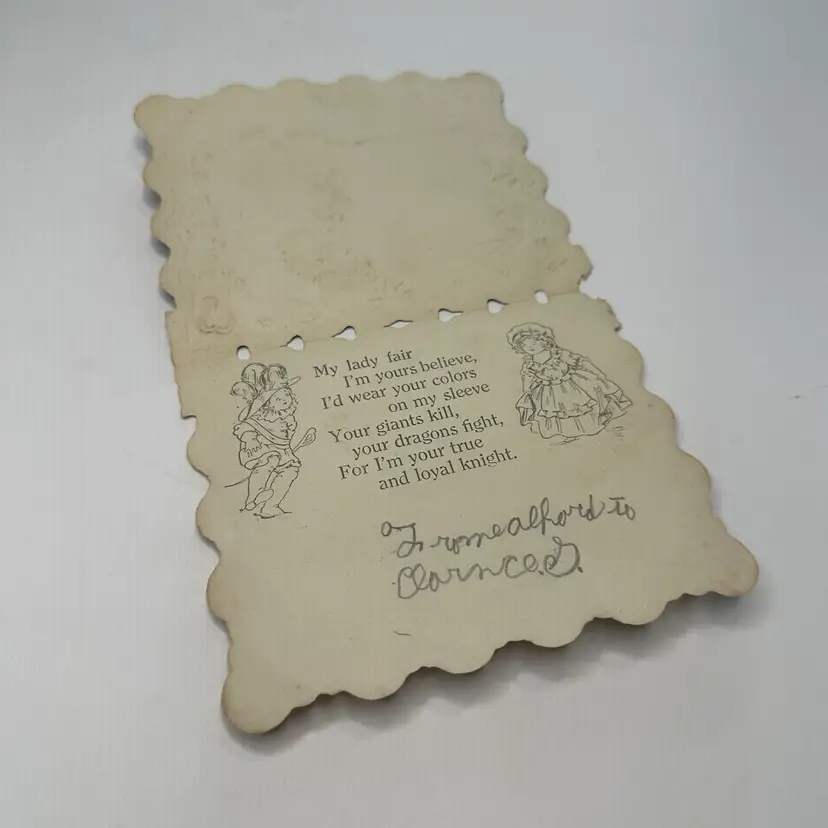 My lady fair
I'm yours believe,
I'd wear your colors
on my sleeve
Your giants kill,
your dragons fight,
For I'm your true
and loyal knight.
Frome alhord to
Clarnce. G.